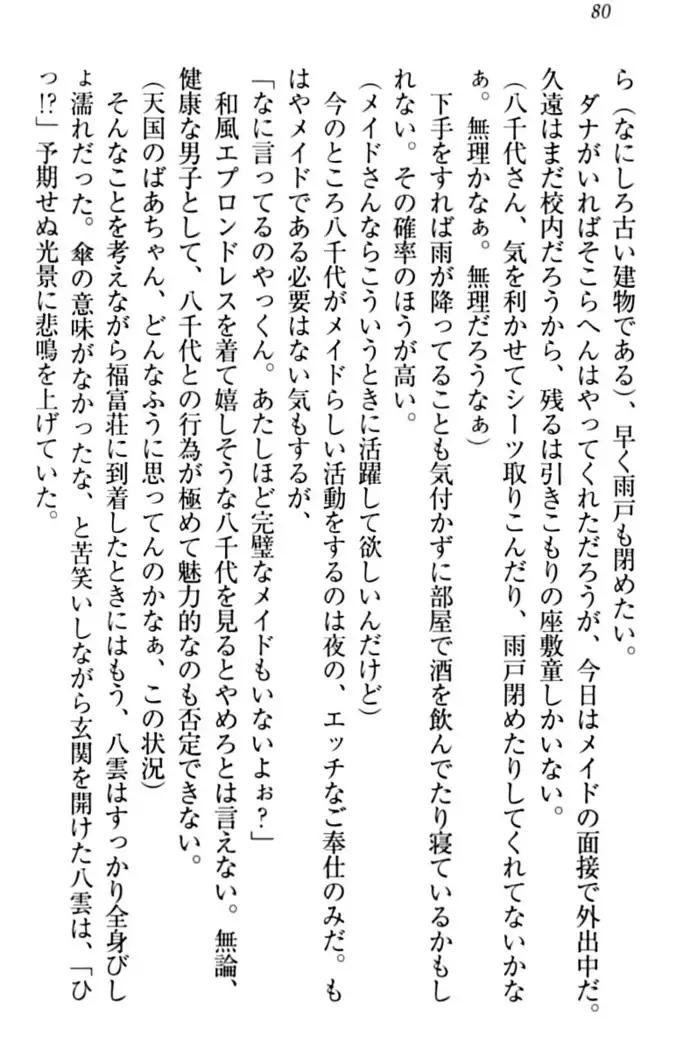 80
ら（なにしろ古い建物である）、早く雨戸も閉めたい。
　ダナがいればそこらへんはやってくれただろうが、今日はメイドの面接で外出中だ。
久遠はまだ校内だろうから、残るは引きこもりの座敷童しかいない。
（八千代さん、気を利かせてシーツ取りこんだり、雨戸閉めたりしてくれてないかな
ぁ。無理かなぁ。無理だろうなぁ）
　下手をすれば雨が降ってることも気付かずに部屋で酒を飲んでたり寝ているかもし
れない。その確率のほうが高い。
（メイドさんならこういうときに活躍して欲しいんだけど）
　今のところ八千代がメイドらしい活動をするのは夜の、エッチなご奉仕のみだ。も
はやメイドである必要はない気もするが、
「なに言ってるのやっくん。あたしほど完璧なメイドもいないよぉ？」
　和風エプロンドレスを着て嬉しそうな八千代を見るとやめろとは言えない。無論、
健康な男子として、八千代との行為が極めて魅力的なのも否定できない。
（天国のばあちゃん、どんなふうに思ってんのかなぁ、この状況）
　そんなことを考えながら福富荘に到着したときにはもう、八雲はすっかり全身びし
ょ濡れだった。傘の意味がなかったな、と苦笑いしながら玄関を開けた八雲は、「ひ
っ!?」予期せぬ光景に悲鳴を上げていた。